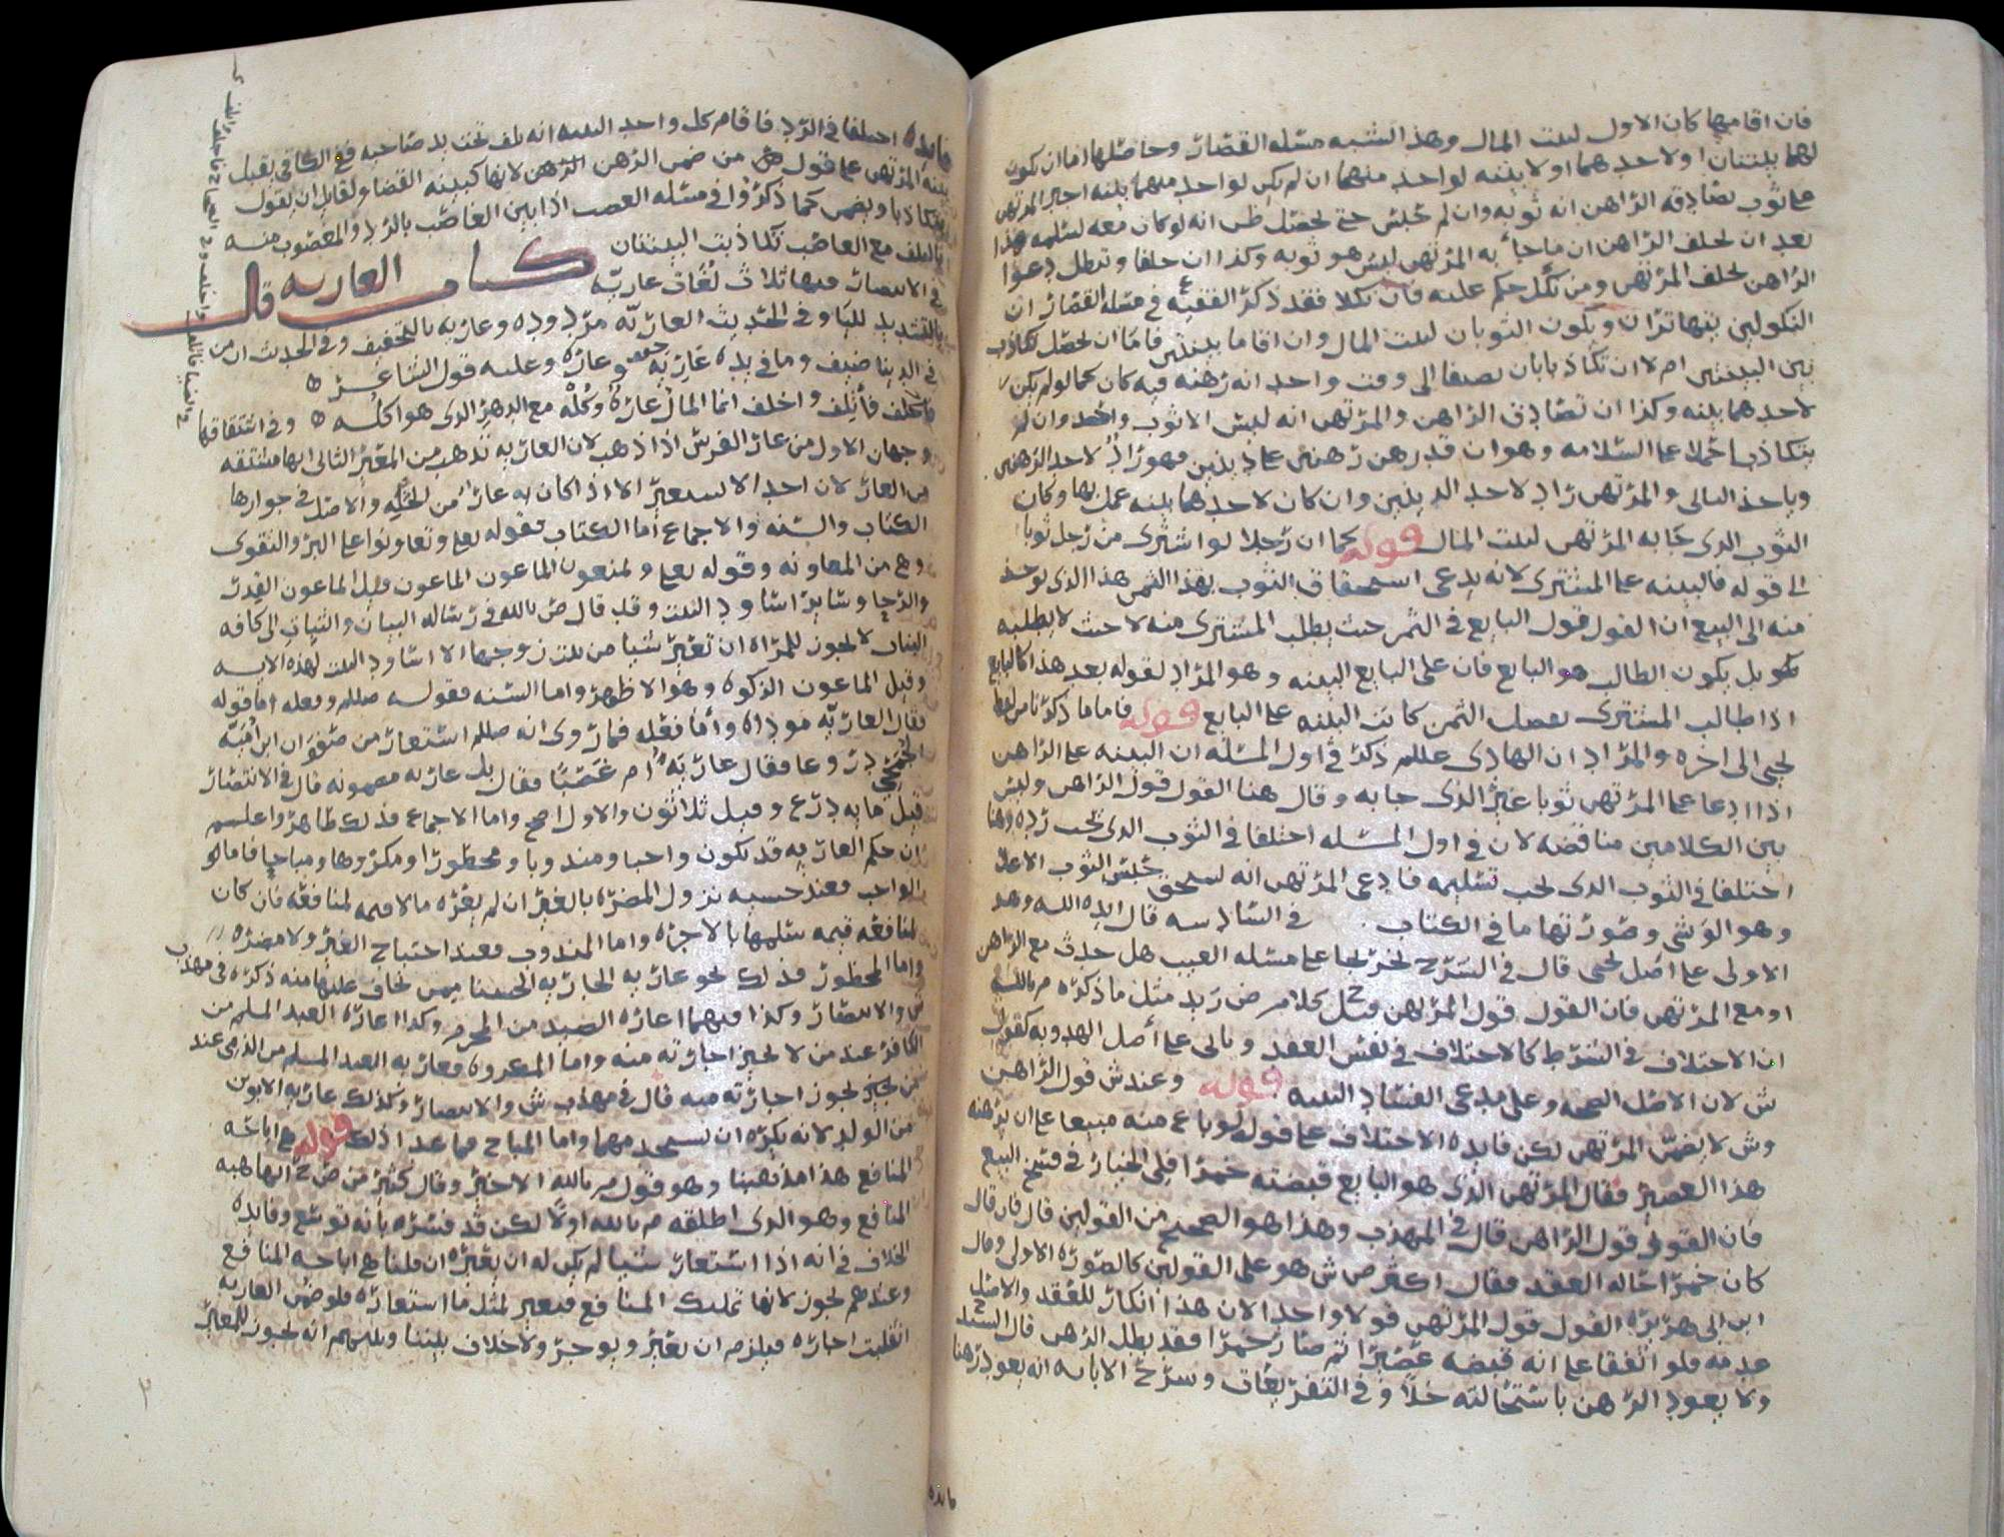 فان اقامها كان الاول لبيت المال وهذا الشبه مسئله القصار وحاصلها اما ان يكون
لهما بينتان او لاحدهما او لا بينه لواحد منهما ان لم يكن لواحد منهما بينه اجبر المرتهن
على ثوب يصادقه الراهن انه ثوبه وان لم حبس حتى يحصل ظن انه لو كان معه لسلمه هذا
بعد ان يحلف الراهن ان ما جاء به المرتهن ليس هو ثوبه وكذا ان حلفا وتبطل دعوا
الراهن يحلف المرتهن ومن نكل حكم عليه فان نكلا فقد ذكر الفقيه ع في مسئله القصار ان
النكولين يتهاتران ويكون الثوبان لبيت المال وان اقاما بينتين فاما ان يحصل تكاذب
بين البينتين ام لا ان تكاذبا بان يضيفا الى وقت واحد انه رهنه فيه كان كما لو لم يكن
لاحدهما بينه وكذا ان تصادق الراهن والمرتهن انه ليس الا ثوب واحد وان لم
يتكاذبا حملا على السلامه وهو ان قد رهن رهنين على دينين فهو راد لاحد الرهنين
وياخذ الثاني والمرتهن راد لاحد الدينين وان كان لاحدهما بينه عمل بها وكان
الثوب الذي جا به المرتهن لبيت المال قوله كما ان رجلا لو اشترى من رجل ثوبا
الى قوله فالبينه على المشتري لانه يدعي استحقاق الثوب بهذا الثمن هذا الذي يوخذ
منه الى البيع ان القول قول البايع في الثمر حيث يطلب المشتري منه لا حيث لا يطلبه
بل يكون الطالب هو البايع فان على البايع البينه وهو المراد بقوله بعد هذا كالبايع
اذا طالب المشتري بفضل الثمن كانت البينه على البايع قوله فاما ما ذكرنا من لفظ
يحيى الى اخره والمراد ان الهادي علىلم ذكر في اول المسئله ان البينه على الراهن
اذا ادعا على المرتهن ثوبا غير الذي جا به وقال هنا القول قول الراهن وليس
بين الكلامين مناقضه لان في اول المسئله اختلفا في الثوب الذي يجب رده وهنا
اختلفا في الثوب الذي يجب تسليمه فادعى المرتهن انه يستحق حبس الثوب الاعلا
وهو الوشي وصورتها ما في الكتاب في السادسه قال ايده الله وهد
الاولى على اصل يحيى قال في الشرح تخريجا على مسئله العيب هل حدث مع الراهن
او مع المرتهن فان القول قول المرتهن وقيل ح كلام ض زيد مثل ما ذكره م بالله
ان الاختلاف في الشرط كالاختلاف في نفس العقد وياتي على اصل الهدويه كقول
ش لان الاصل الصحه وعلى مدعي الفساد البينه قوله وعند ش قول الراهن
وش لا يضمن المرتهن لكن فايده الاختلاف على قوله لو باع منه مبيعا على ان يرهنه
هذا العصير فقال المرتهن الذي هو البايع قبضته خمرا فلي الخيار في فسخ البيع
فان القول قول الراهن قال في المهذب وهذا هو الصحيح من القولين قال فان قال
كان خمرا حاله العقد فقال اكثر ص ش هو على القولين كالصوره الاولى وقال
ابن ابي هريره القول قول المرتهن قولا واحدا لان هذا انكار للعقد والاصل
عدمه فلو اتفقا على انه قبضه عصيرا ثم صار خمرا فقد بطل الرهن قال السيد ح
ولا يعود الرهن باستحالته خلا وفي التفريعات وشرح الابانه انه يعود رهنا
فايده
فايده اختلفا في الرد فاقام كل واحد البينه انه تلف تحت يد صاحبه ففي الكافي يقبل
بينه المرتهن على قول من ضمن الرهن لانها كبينه القضا ولقايل ان يقول
يتكاذبا ويضمن كما ذكروا في مسئله الغصب اذا بين الغاصب بالرد والمغصوب منه
بالتلف مع الغاصب تكاذبت البينتان
كتاب العاريه قال
في الانتصار فيها ثلاث لغات عاريّه
بالتشديد للياو في الحديث العاريّه مردوده وعاريه بالتخفيف وفي الحديث ان من
في الدنيا ضيف وما في يده عاريه وعاره وعليه قول الشاعر
فاخلف فأتلف واخلف انما المال عارةٌ وكُلْهُ مع الدهر الذي هو اكله وفي اشتقاقها
وجهان الاول من عار الفرس اذا ذهب لان العاريه تذهب من المعير الثاني انها مشتقه
من العار لان احدا لا يستعير الا اذا كان به عار من الحاجه والاصل في جوازها
الكتاب والسنه والاجماع اما الكتاب فقوله تعلى وتعاونوا على البر والتقوى
وهي من المعاونه وقوله تعلى ويمنعون الماعون الماعون قيل الماعون القدر
والرحا وسايرا ساود البيت وقد قال ض بالله في رساله البيان والثبات الى كافه
البنات لا يجوز للمراه ان تعير شيا من بيت زوجها الا اساود البيت لهذه الايه
وقيل الماعون الزكوه وهو الاظهر واما السنه فقوله صلىلم وفعله اما قوله
فقال العاريّه موداه وأما فعله فما روي انه صلىلم استعار من صفوان ابن أميّه
الجمحي دروعا فقال عاريّه ام غصبًا فقال بل عاريه مضمونه قال في الانتصار
قيل مايه درع وقيل ثلاثون والاول اصح واما الاجماع فذلك ظاهر واعلم
ان حكم العاريه قد يكون واجبا ومندوبا ومحظورا ومكروها ومباحا فاما
الواجب فعند خشيه نزول المضره بالغير ان لم يعره ما لا قيمه لمنافعه فان كان
لمنافعه قيمه سلمها بالاجره واما المندوب فعند احتياج الغير ولا مضره
واما المحظور فذلك نحو عاريه الجاريه الحسنا ممن يخاف عليها منه ذكره في مهذب
ش والانتصار وكذا فيهما اعاره الصيد من المحرم وكذا اعاره العبد المسلم من
الكافر عند من لا يجيز اجارته منه واما المكروه فعاريه العبد المسلم من الذمي عند
من يجيز يجوز اجارته منه قال في مهذب ش والانتصار وكذلك عاريه الابوين
من الولد لانه يكره ان يستخدمهما واما المباح فما عدا ذلك قوله هي اباحه
المنافع هذا مذهبنا وهو قول م بالله الاخير وقال كثير من ص ح انها هبه
المنافع وهو الذي اطلقه م بالله اولًا لكن قد فسره بانه توسع وفايده
الخلاف في انه اذا استعار شيا لم يكن له ان يعيره ان قلنا هي اباحه المنافع
وعندهم يجوز لانها تمليك المنافع فيعير لمثل ما استعاره فلو ضمن العاريه
انقلبت اجاره فيلزم ان يعير ويوجر ولا خلاف بيننا وبينهم انه يجوز للمعير